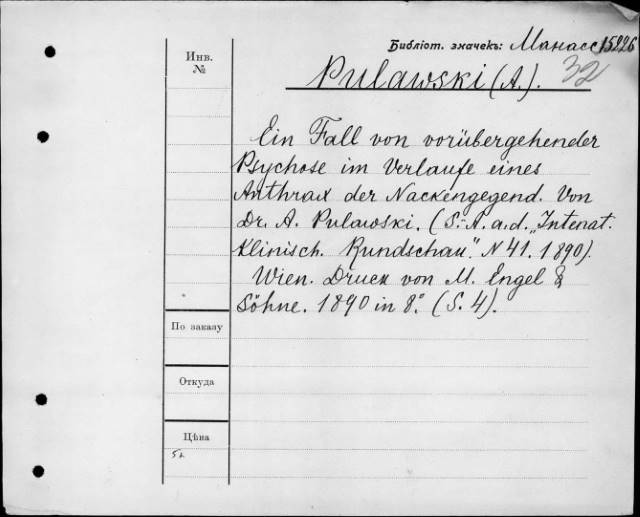 Библіот. значекъ: Манасс 15226
32
Инв.
№
Pulawski (A.).
Ein Fall von vorübergehender
Psychose im Verlaufe eines
Anthrax der Nackengegend. Von
Dr. A. Pulawski. (S.-A. a. d. „Intenat.
Klinisch. Rundschau". N 41. 1890).
Wien. Druck von M. Engel &
Söhne. 1890 in 8.° (S. 4).
По заказу
Откуда
Цѣна